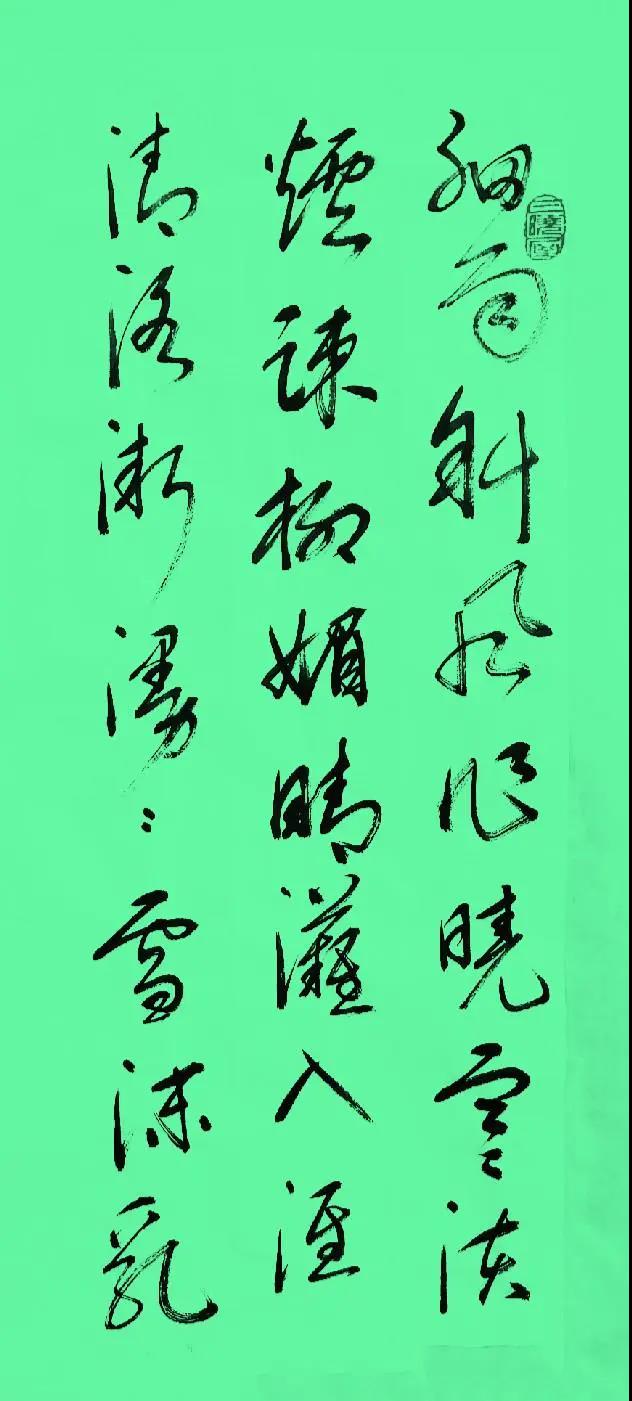 細雨斜風作曉寒淡
煙疎柳媚晴灘入淮
清洛漸漫〻雪沫乳